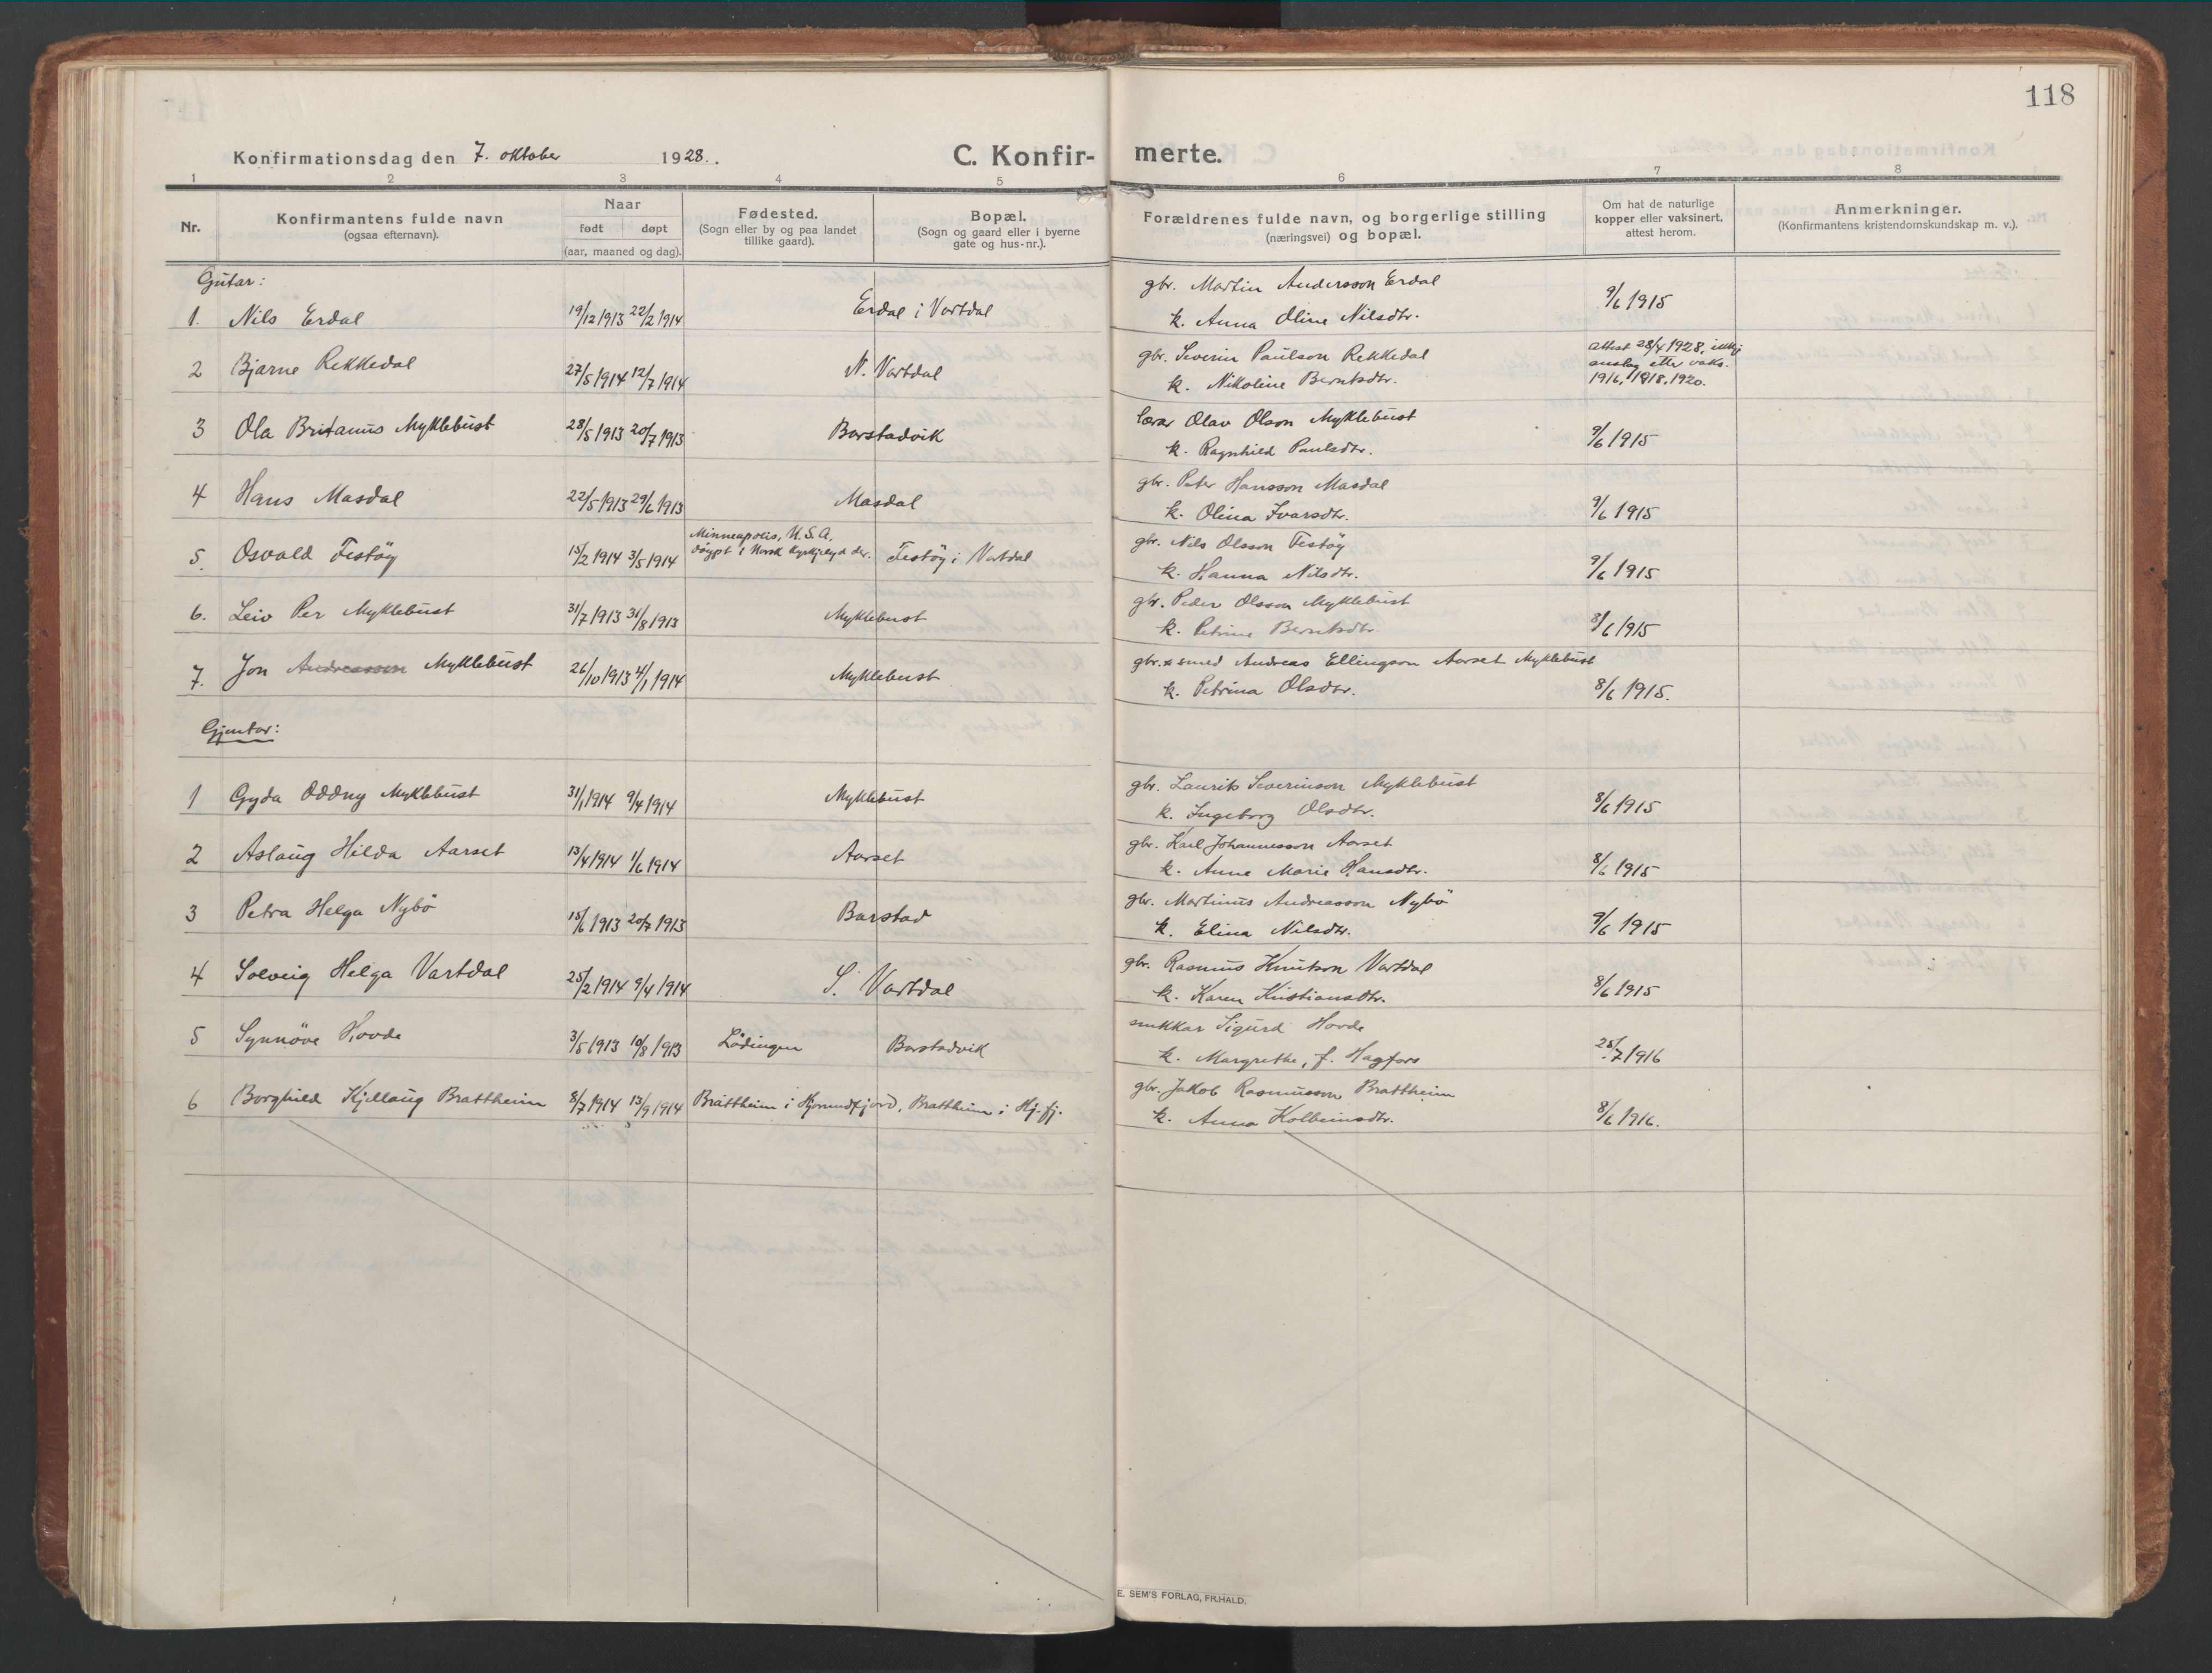 118
Konfirmationsdag den 7. oktober 1928. C. Konfir- merte.
1 2 3 4 5 6 7 8
Nr. Konfirmantens fulde navn (ogsaa efternavn). Naar født døpt (aar, maaned og dag). Fødested. (Sogn eller by og paa landet tillike gaard). Bopæl. (Sogn og gaard eller i byerne gate og hus-nr.). Forældrenes fulde navn, og borgerlige stilling (næringsvei) og bopæl. Om hat de naturlige kopper eller vaksinert, attest herom. Anmerkninger. (Konfirmantens kristendomskundskap m. v.).
Gutar:
1. Nils Erdal 19/12 1913 22/2 1914 Erdal i Vartdal gbr. Martin Andersson Erdal 9/6 1915
k. Anna Oline Nilsdtr.
2 Bjarne Rekkedal 27/5 1914 12/7 1914 N. Vartdal gbr. Severin Paulson Rekkedal attest 28/4 1928, ikkje
k. Nikoline Berntsdtr. anslag etter vaks.
1916, 1918, 1920.
3 Ola Britanus Myklebust 28/5 1913 20/7 1913 Barstadvik lærar Olav Olson Myklebust 9/6 1915
k. Ragnhild Paulsdtr.
4 Hans Masdal 22/5 1913 29/6 1913 Masdal gbr. Peter Hansson Masdal
k. Olina Ivarsdtr. 9/6 1915
5. Osvald Festöy 15/2 1914 3/5 1914 Minneapolis, U.S.A.
döypt i Norsk kyrkjelyd der. Festöy i Vartdal gbr. Nils Olsson Festöy
k. Hanna Nilsdtr. 9/6 1915
6. Leiv Per Myklebust 31/7 1913 31/8 1913 Myklebust gbr. Peder Olsson Myklebust
k. Petrine Berntsdtr. 8/6 1915
7. Jon Andreasson Myklebust 26/10 1913 4/1 1914 Myklebust gbr. & smed Andreas Ellingson Aarset Myklebust
k. Petrina Olsdtr. 8/6 1915.
Gjentor:
1 Gyda Oddny Myklebust 31/1 1914 9/4 1914 Myklebust gbr. Laurits Severinson Myklebust
k. Ingeborg Olsdtr. 8/6 1915
2 Aslaug Hilda Aarset 13/4 1914 1/6 1914 Aarset gbr. Karl Johannesson Aarset
k. Anne Marie Hansdtr. 8/6 1915
3 Petra Helga Nybö 15/6 1913 20/7 1913 Barstad gbr. Martinus Andreasson Nybö
k. Elina Nilsdtr. 9/6 1915
4 Solveig Helga Vartdal 25/2 1914 9/4 1914 S. Vartdal gbr. Rasmus Knutson Vartdal
k. Karen Kristiansdtr. 8/6 1915
5 Synnöve Hovde 3/5 1913 10/8 1913 Lödingen Barstadvik snikkar Sigurd Hovde
k. Margrethe, f. Hagfors 25/7 1916
6 Borghild Kjellaug Brattheim 8/7 1914 13/9 1914 Brattheim i Hjörundfjord, Brattheim i Hj.fj. gbr. Jakob Rasmusson Brattheim
k. Anna Kolbeinsdtr. 8/6 1916.
E. SEM'S FORLAG, FR.HALD.